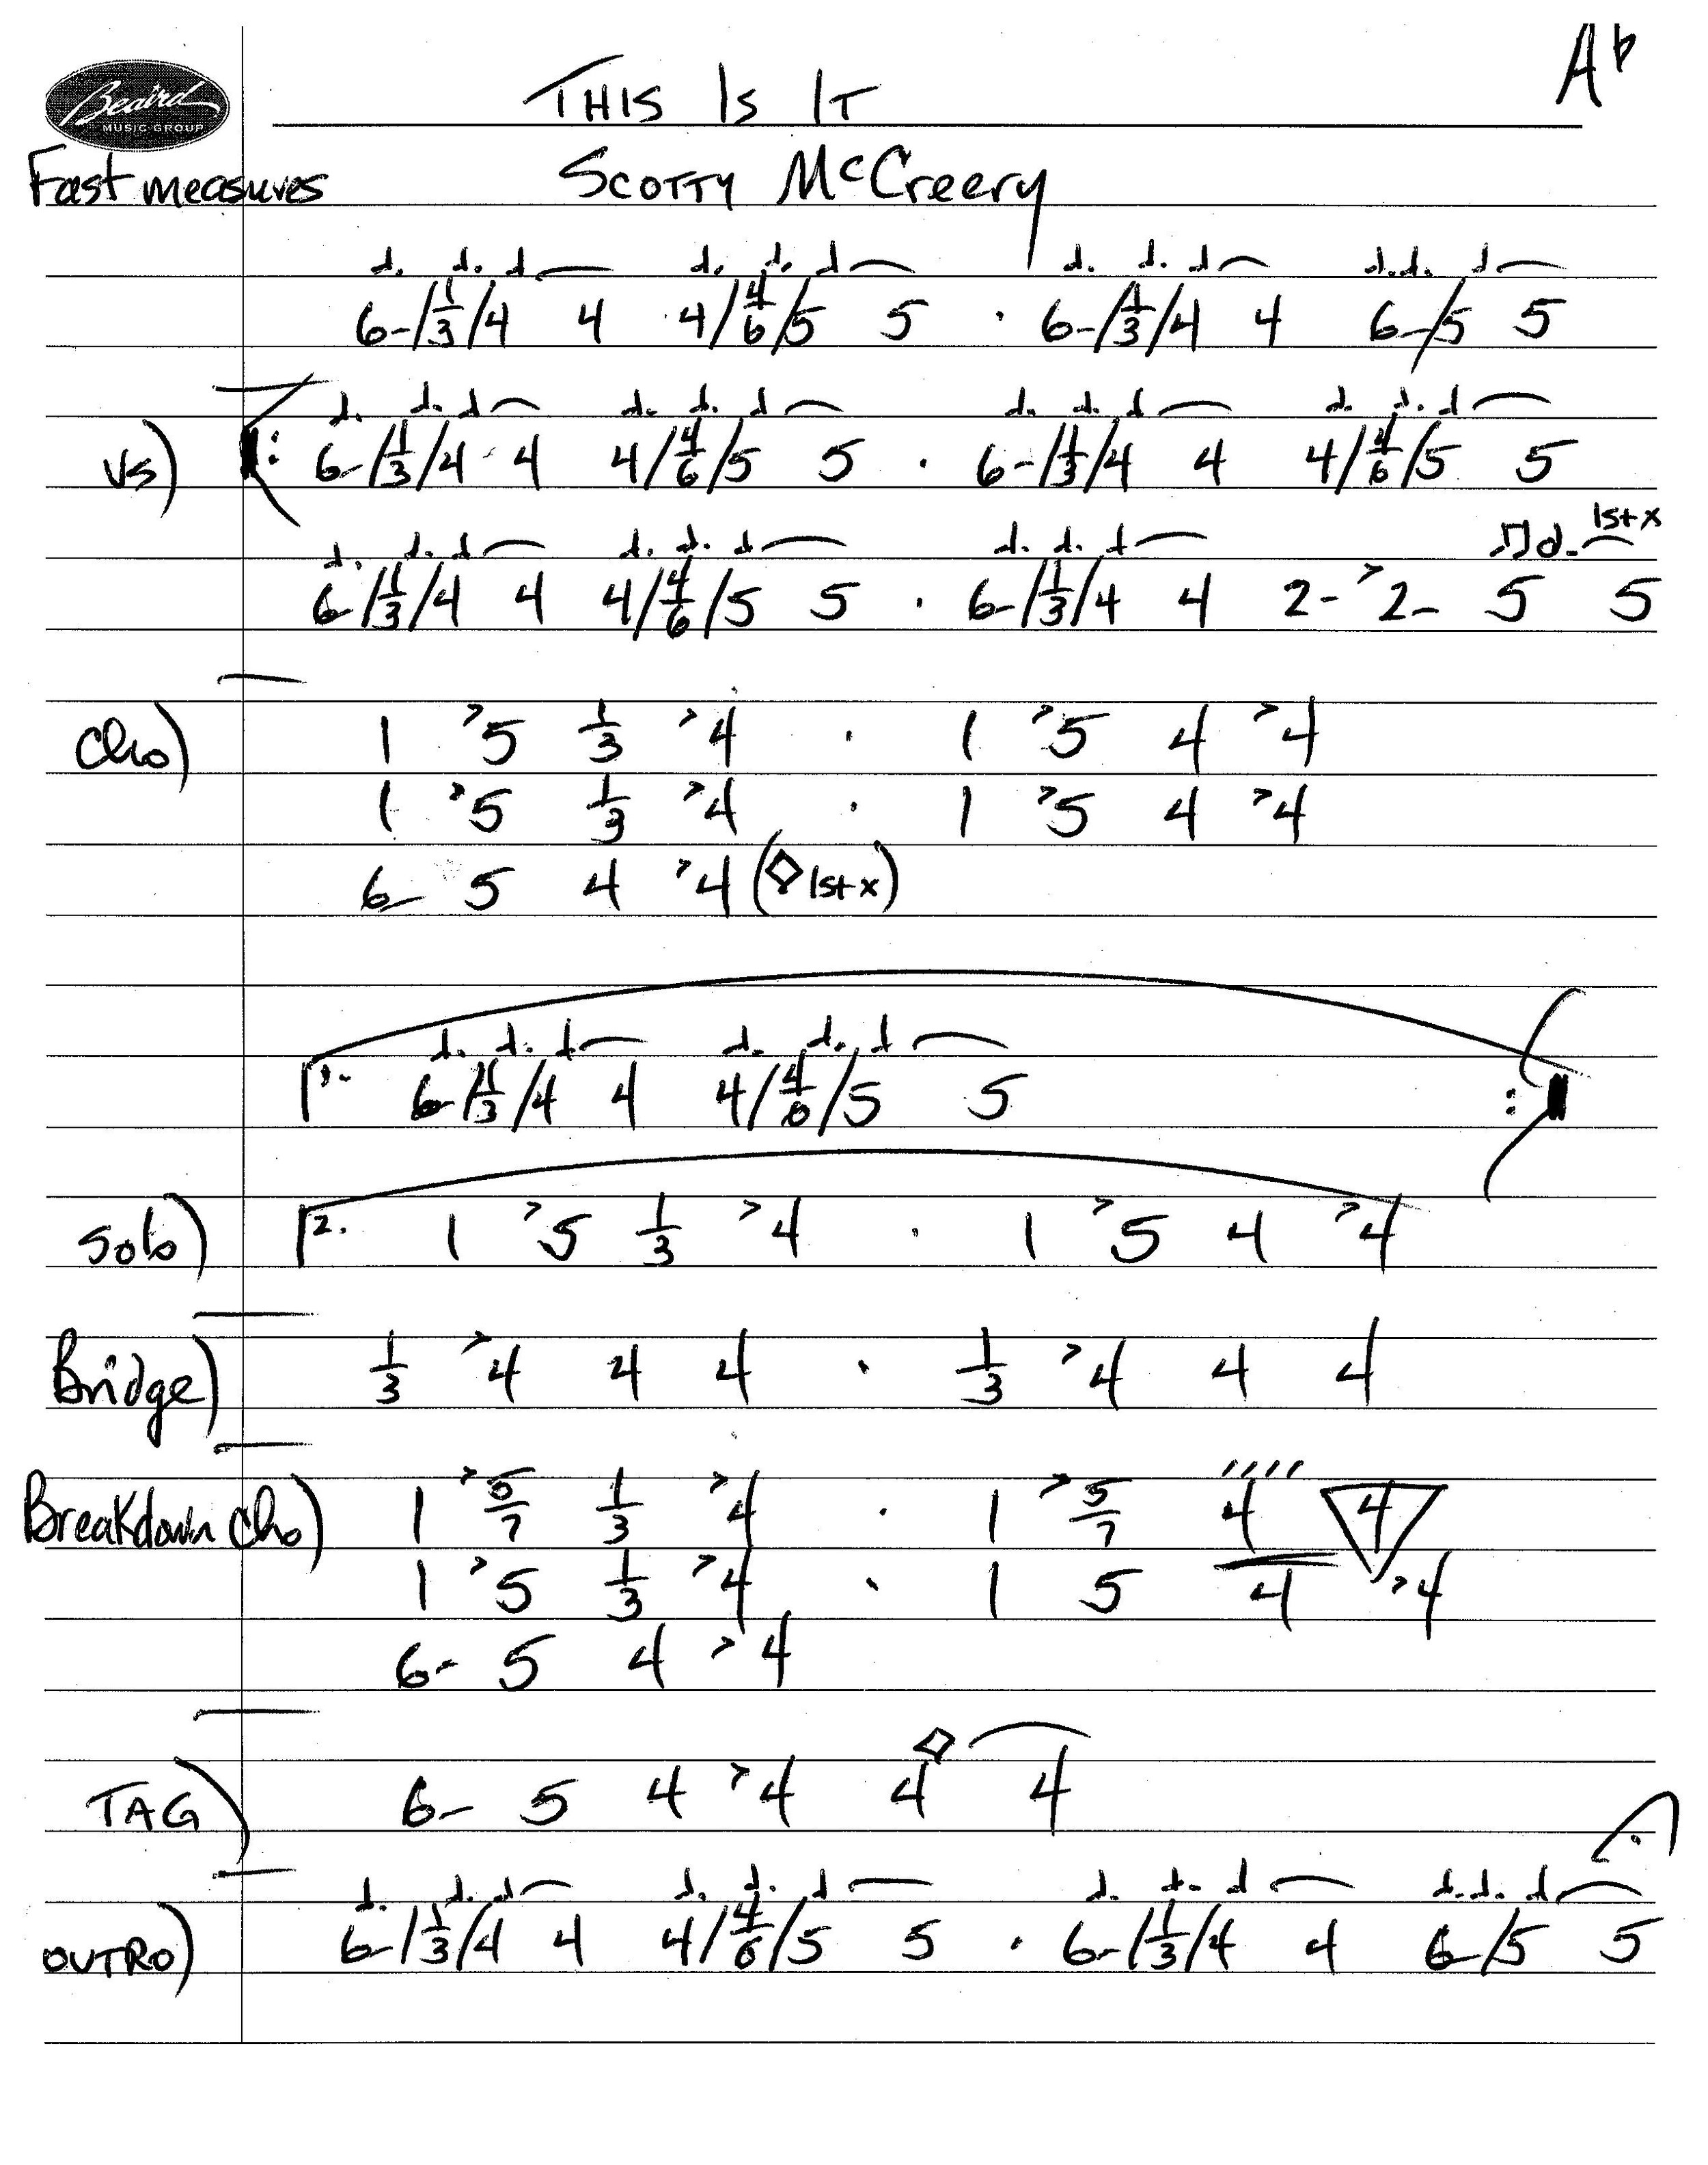 A♭
Beaird
MUSIC GROUP
THIS IS IT
Fast measures
SCOTTY McCreery
6-/1/3/4 4 4/4/6/5 5 · 6-/1/3/4 4 6-/5 5
VS) 𝄆 6-/1/3/4 4 4/4/6/5 5 · 6-/1/3/4 4 4/4/6/5 5
1st x
6-/1/3/4 4 4/4/6/5 5 · 6-/1/3/4 4 2- >2- 5 5
Cho) 1 >5 1/3 >4 · 1 >5 4 >4
1 >5 1/3 >4 · 1 >5 4 >4
6- 5 4 >4 (◇ 1st x)
1. 6-/1/3/4 4 4/4/6/5 5 :
Solo) 2. 1 >5 1/3 >4 · 1 >5 4 >4
Bridge) 1/3 >4 4 4 · 1/3 >4 4 4
Breakdown Cho) 1 >5/7 1/3 >4 · 1 >5/7 4 4
1 >5 1/3 >4 · 1 5 4 >4
6- 5 4 >4
TAG) 6- 5 4 >4 4 4
OUTRO) 6-/1/3/4 4 4/4/6/5 5 · 6-/1/3/4 4 6-/5 5